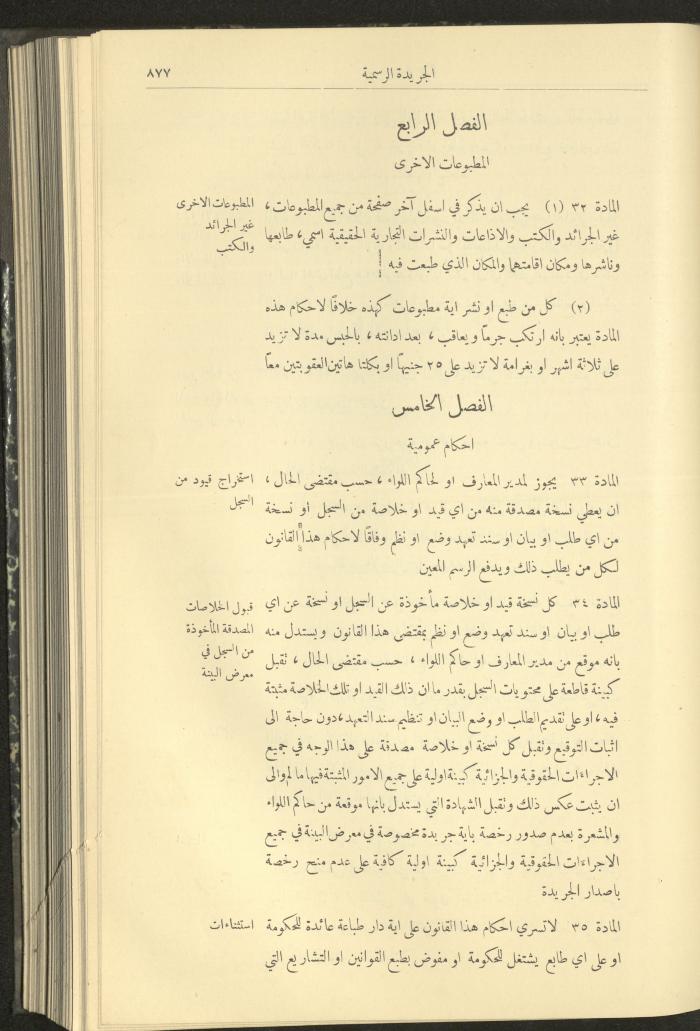 الجريدة الرسمية
٨٧٧
الفصل الرابع
المطبوعات الاخرى
المادة ٣٢ (١) يجب ان يذكر في اسفل آخر صفحة من جميع المطبوعات،
غير الجرائد والكتب والاذاعات والنشرات التجارية الحقيقية اسمي، طابعها
وناشرها ومكان اقامتهما والمكان الذي طبعت فيه
المطبوعات الاخرى
غير الجرائد
والكتب
(٢) كل من طبع او نشر اية مطبوعات كهذه خلافًا لاحكام هذه
المادة يعتبر بانه ارتكب جرمًا ويعاقب، بعد ادانته، بالحبس مدة لا تزيد
على ثلاثة اشهر او بغرامة لا تزيد على ٢٥ جنيهًا او بكلتا هاتين العقوبتين معًا
الفصل الخامس
احكام عمومية
المادة ٣٣ يجوز لمدير المعارف او لحاكم اللواء، حسب مقتضى الحال،
ان يعطي نسخة مصدقة منه من اي قيد او خلاصة من السجل او نسخة
من اي طلب او بيان او سند تعهد وضع او نظم وفاقًا لاحكام هذا القانون
لكل من يطلب ذلك ويدفع الرسم المعين
استخراج قيود من
السجل
المادة ٣٤ كل نسخة قيد او خلاصة مأخوذة عن السجل او نسخة عن اي
طلب او بيان او سند تعهد وضع او نظم بمقتضى هذا القانون ويستدل منه
بانه موقع من مدير المعارف او حاكم اللواء، حسب مقتضى الحال، تقبل
كبينة قاطعة على محتويات السجل بقدر ما ان ذلك القيد او تلك الخلاصة مثبتة
فيه، او على تقديم الطلب او وضع البيان او تنظيم سند التعهد، دون حاجة الى
اثبات التوقيع وتقبل كل نسخة او خلاصة مصدقة على هذا الوجه في جميع
الاجراءات الحقوقية والجزائية كبينة اولية على جميع الامور المثبتة فيها ما لم والى
ان يثبت عكس ذلك وتقبل الشهادة التي يستدل بانها موقعة من حاكم اللواء
والمشعرة بعدم صدور رخصة باية جريدة مخصوصة في معرض البينة في جميع
الاجراءات الحقوقية والجزائية كبينة اولية كافية على عدم منح رخصة
باصدار الجريدة
قبول الخلاصات
المصدقة المأخوذة
من السجل في
معرض البينة
المادة ٣٥ لا تسري احكام هذا القانون على اية دار طباعة عائدة للحكومة
او على اي طابع يشتغل للحكومة او مفوض بطبع القوانين او التشاريع التي
استثناءات